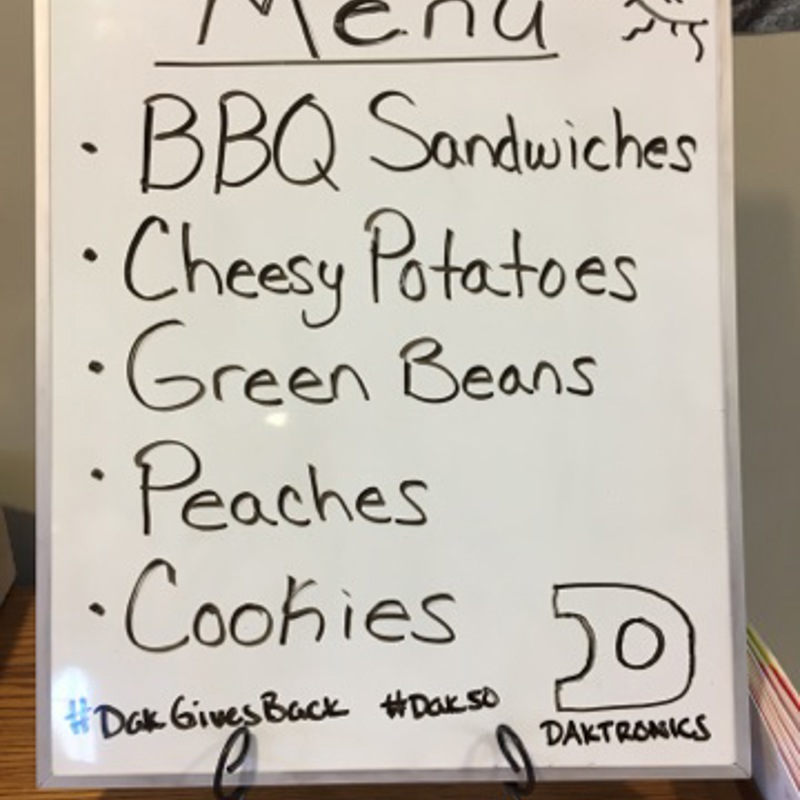 Menu
• BBQ Sandwiches
• Cheesy Potatoes
• Green Beans
• Peaches
• Cookies
#DakGivesBack #Dak50
DAKTRONICS